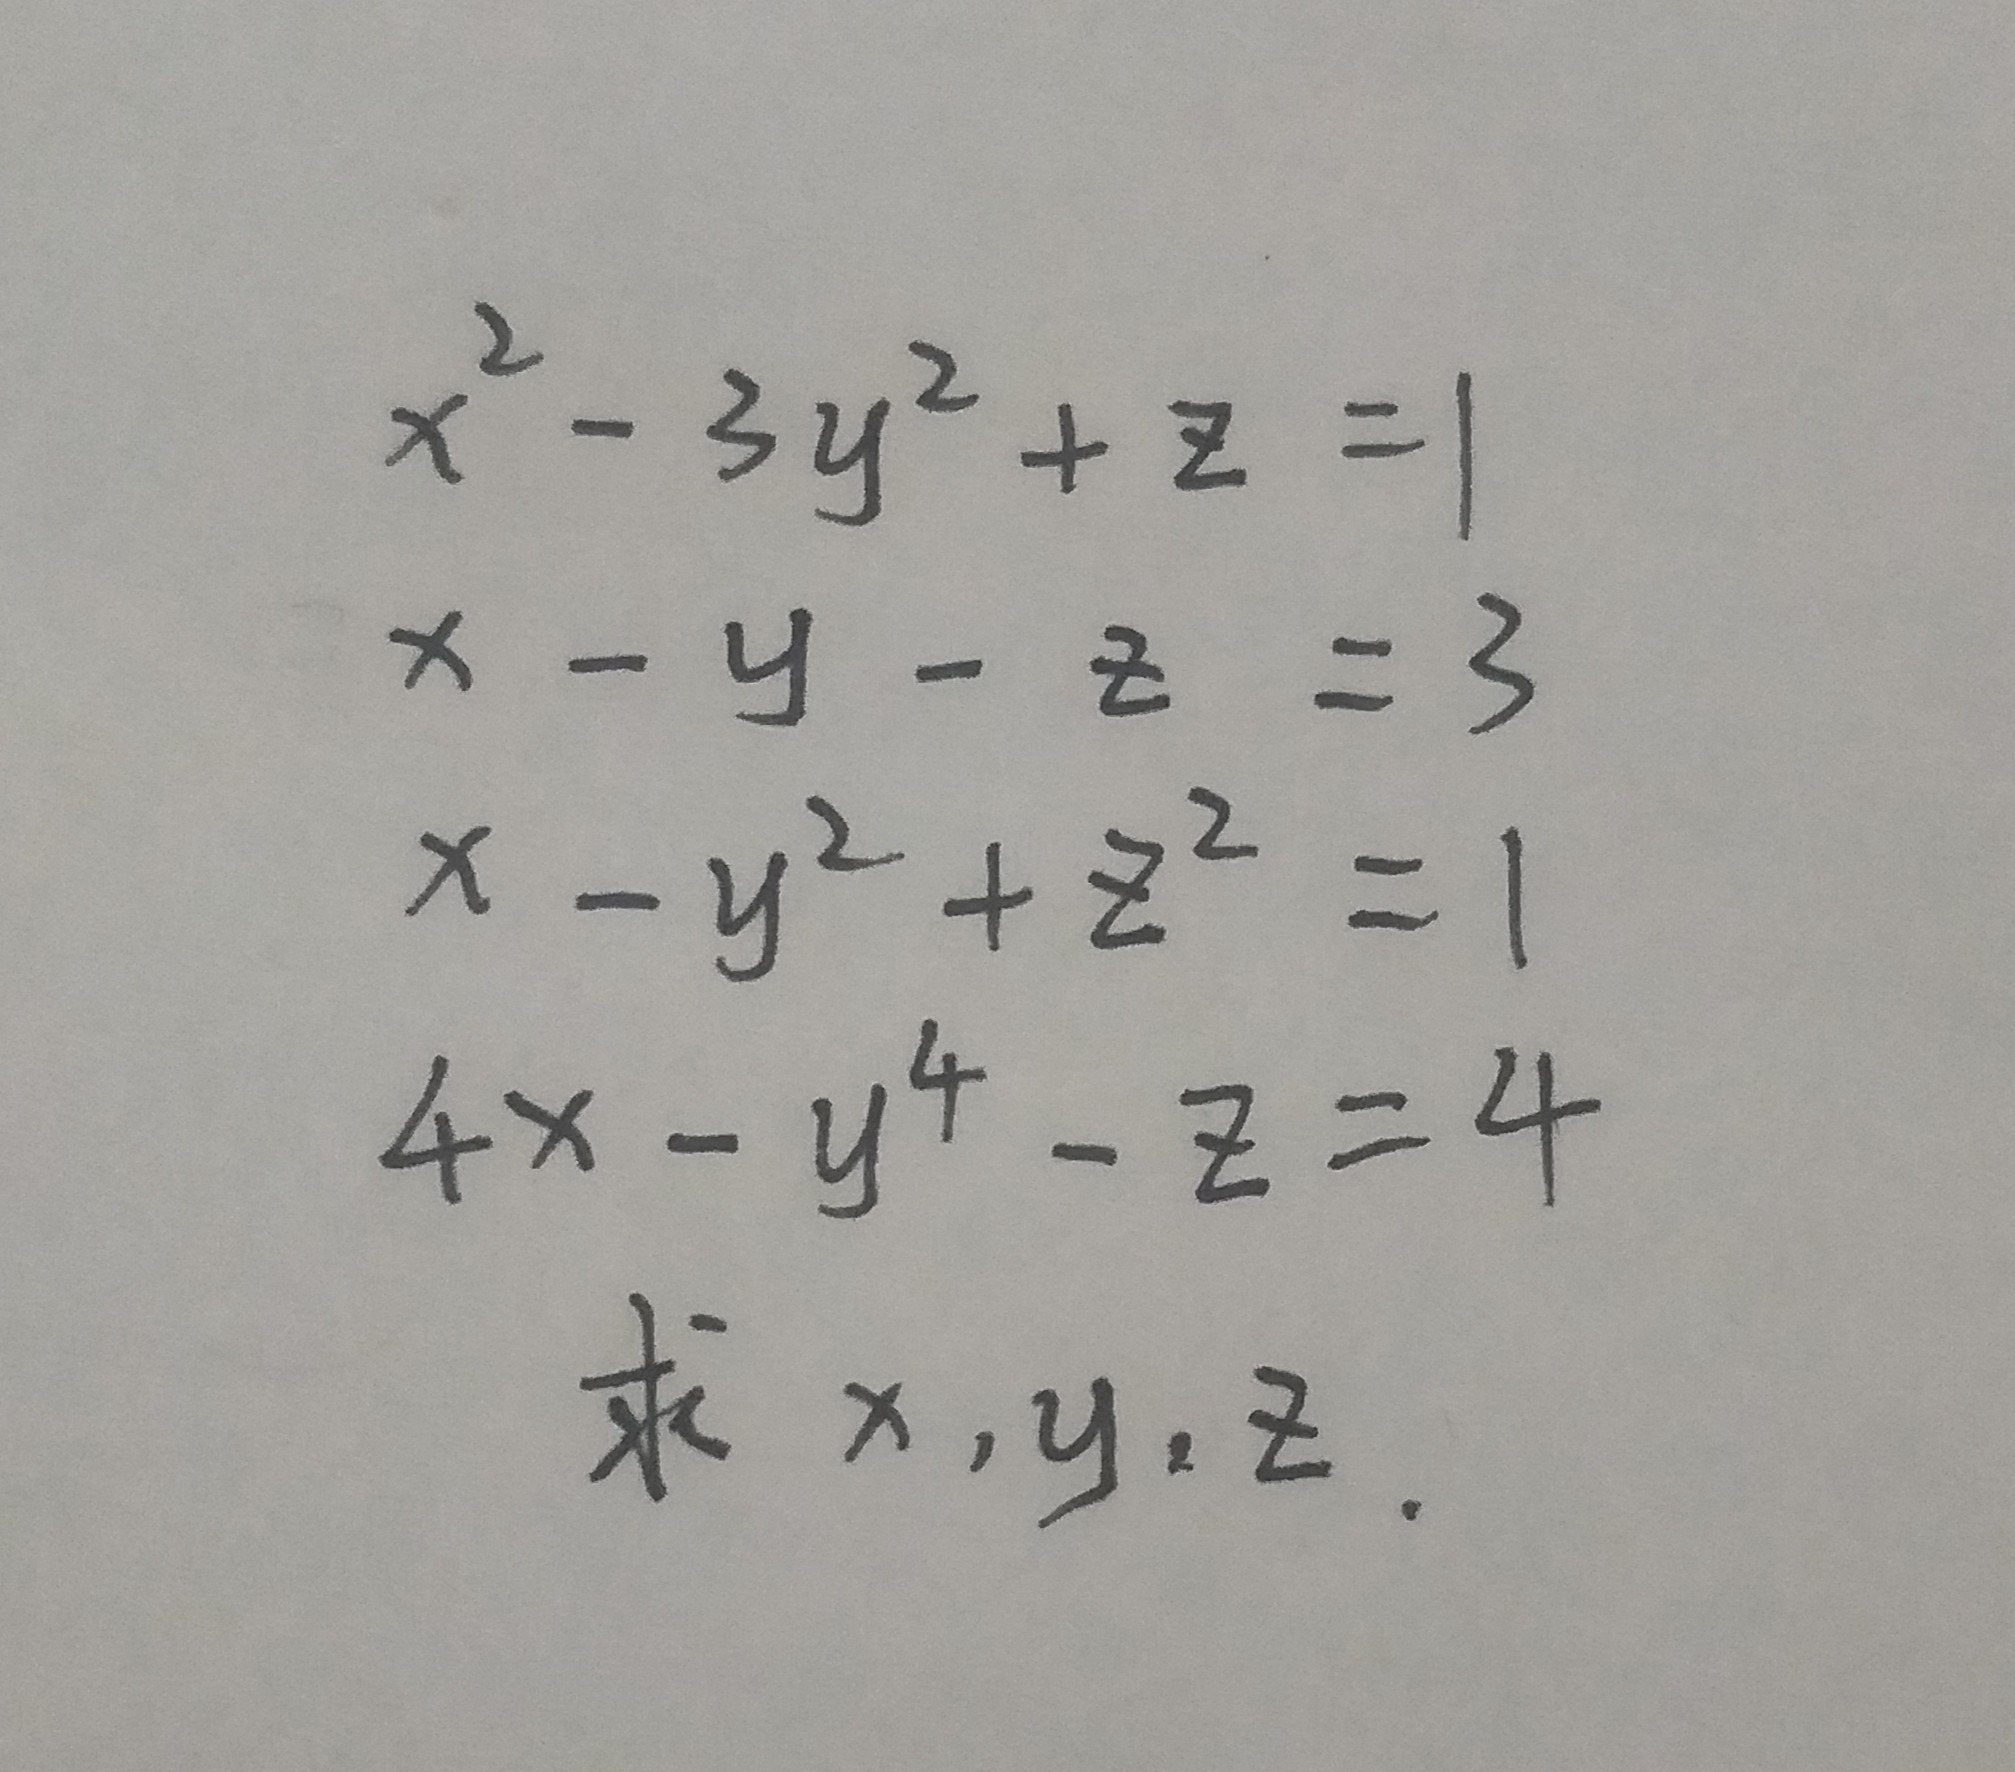 x² - 3y² + z = 1
x - y - z = 3
x - y² + z² = 1
4x - y⁴ - z = 4
求 x, y, z.